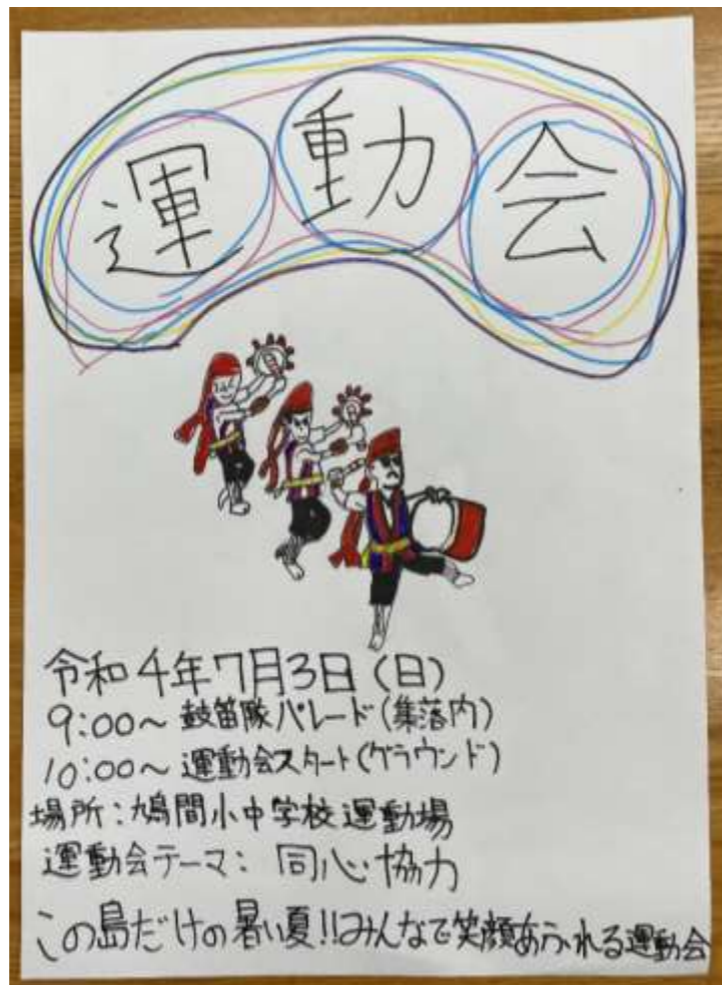 運動会
令和4年7月3日(日)
9:00～鼓笛隊パレード(集落内)
10:00～運動会スタート(グラウンド)
場所:鳩間小中学校運動場
運動会テーマ: 同心協力
この島だけの暑い夏!!みんなで笑顔あふれる運動会